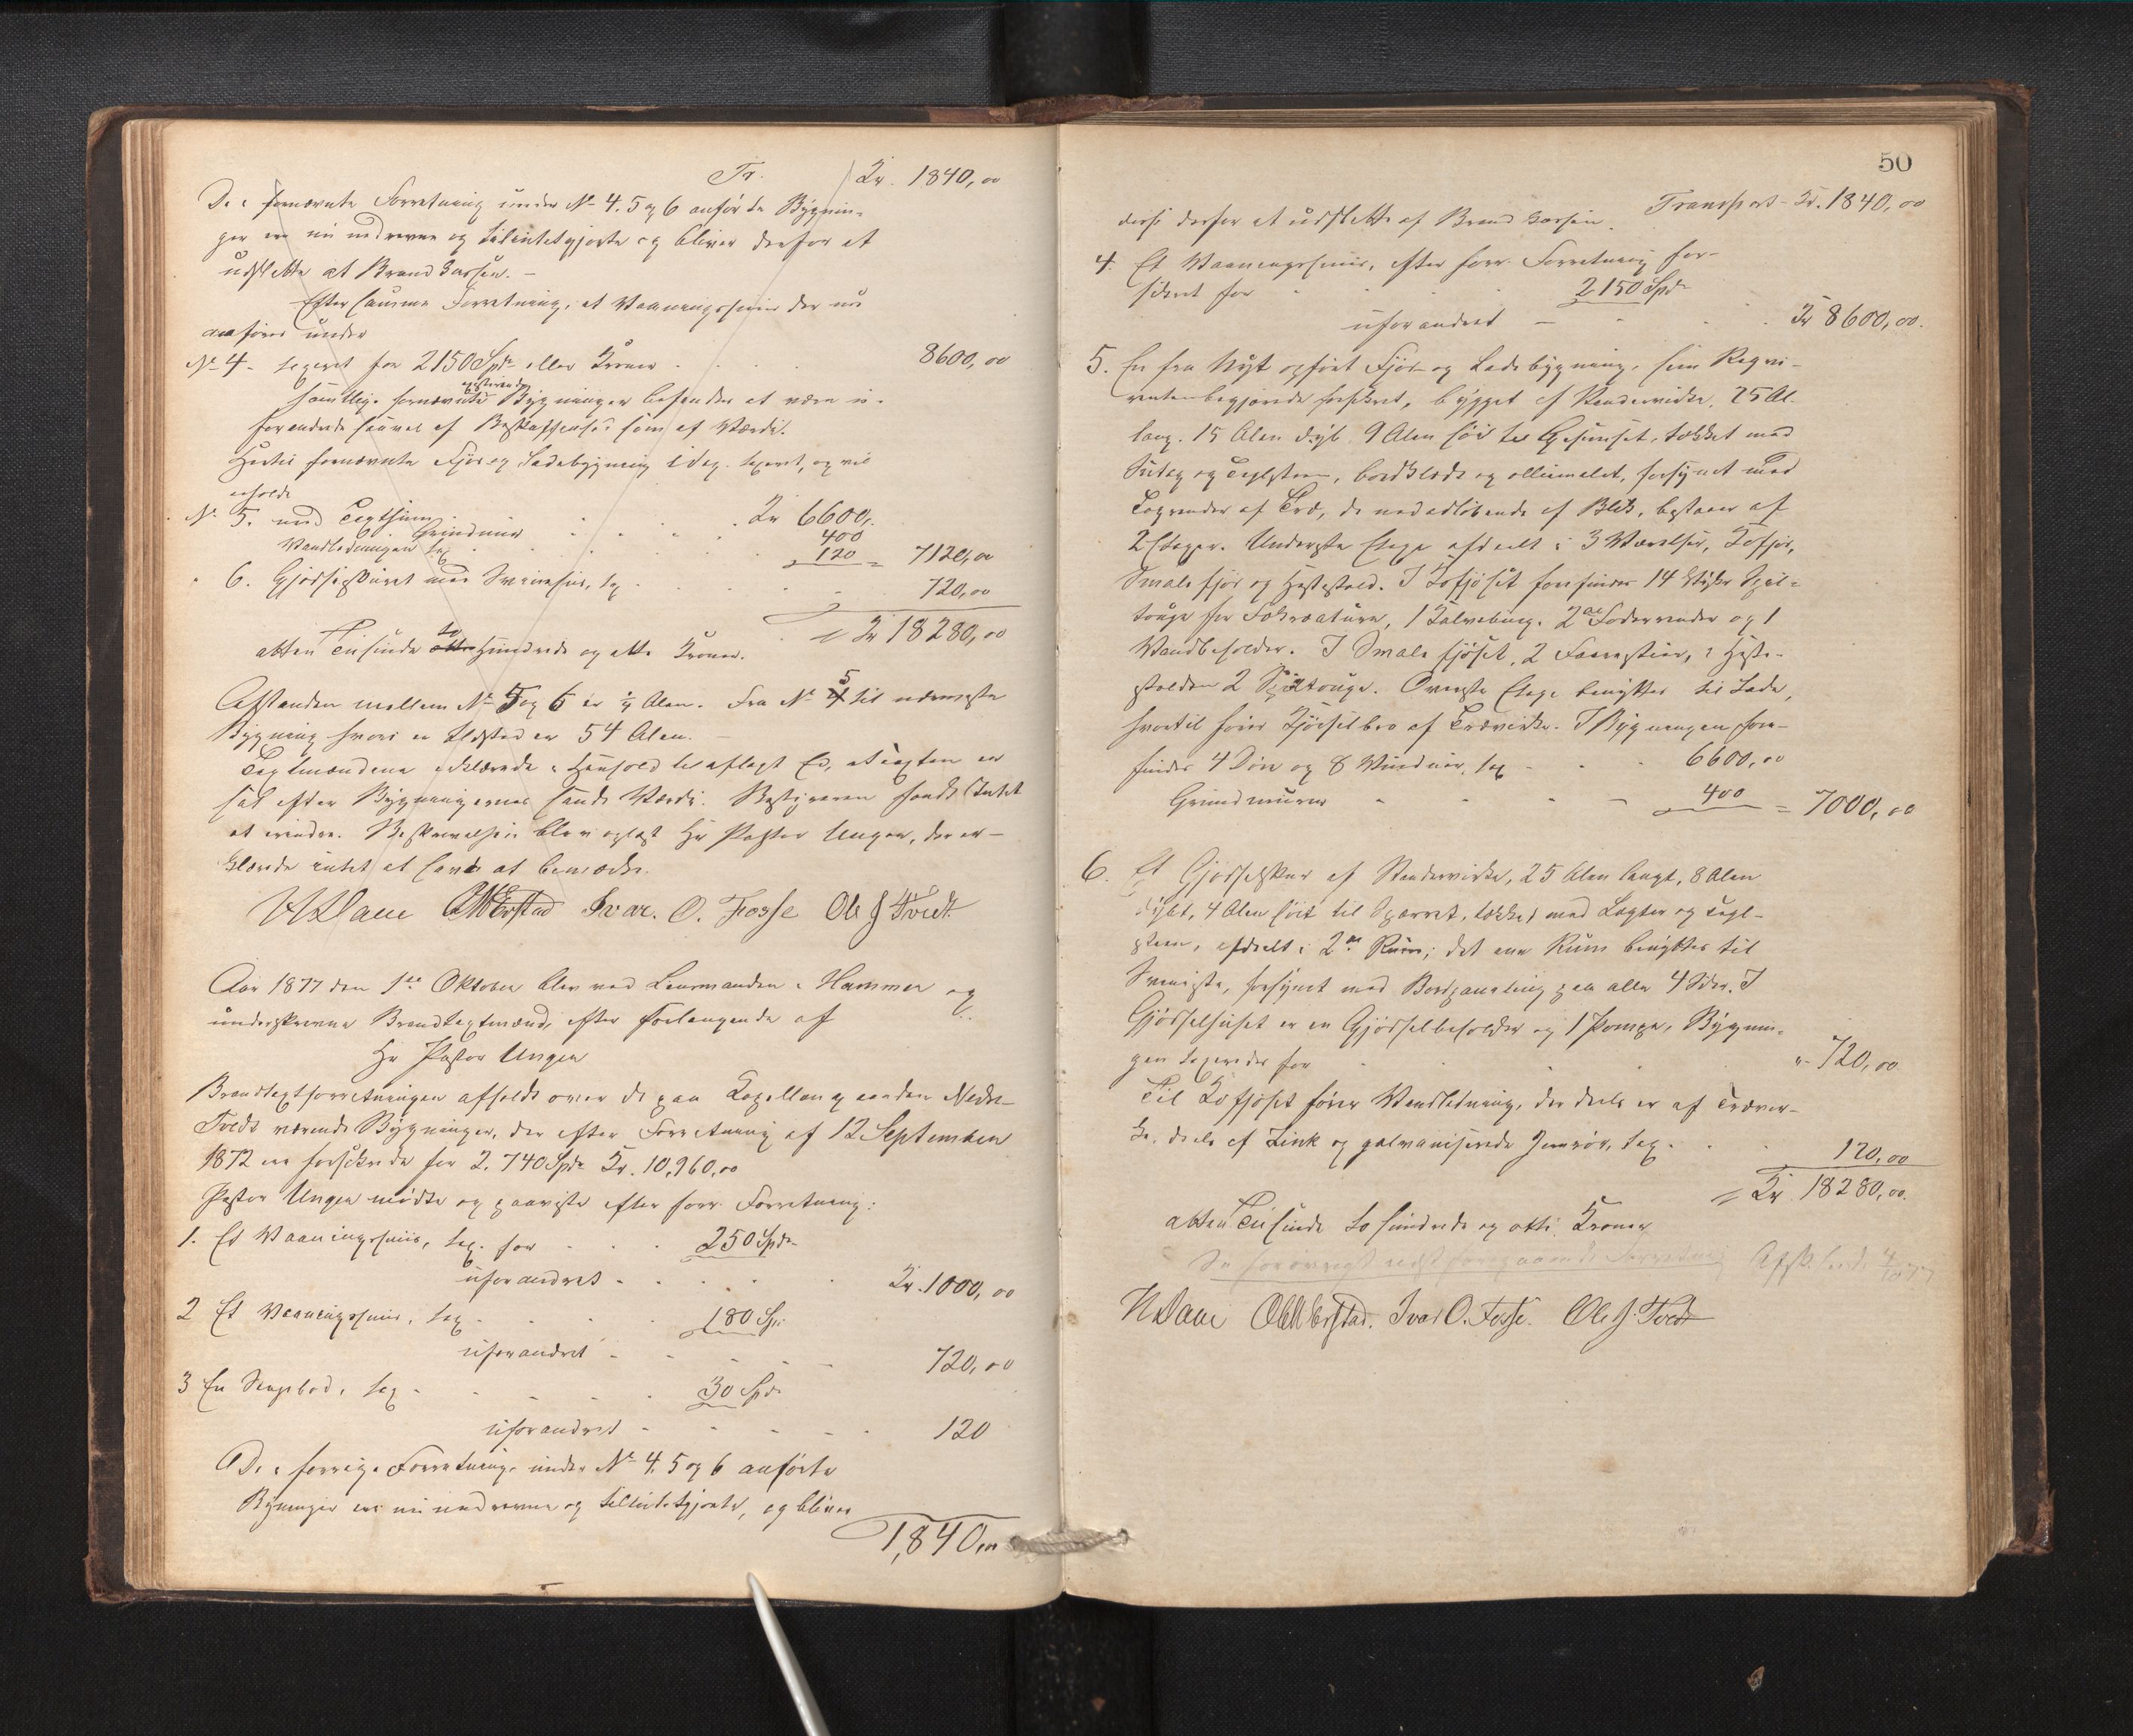 Tr. Kr. 1840,00
De i fornævnte Forretning under No 4. 5 og 6 anførte Bygnin-
ger ere nu nedrevne og tilintetgjorte og bliver derfor at
udslette at Brandkassen. –
Efter samme Forretning, et Vaaningshuus der nu
anføres under
No 4 - taxeret for 2150 Spd. eller Kroner 8600,00
Samtlige fornævnte existerende Bygninger befandtes at være u-
forandrede saavel af Beskaffenhed som af Værdi.
Hertil fornævnte Fjøs og Ladebygning idag taxeret, og vil
erholde
No 5. med Kr 6600,
Grindmuur 400
Vandledningen tax 120 = 7120,00
" 6. Gjødselskuret med Sviinehuus, tax 720,00
Kr 18280,00
atten Tusinde to Hundrede og otte Kroner.
Afstanden mellem No 5 og 6 er ¼ Alen. Fra No 5 til nærmeste
Bygning hvori er Ildsted er 54 Alen. –
Taxtmændene erklærede i Henhold til aflagt Ed, at Taxten er
sat efter Bygningernes sande Værdi. Bestyreren fandt Intet
at erindre. Beskrivelsen blev oplæst Hr Pastor Unger, der er-
klærede intet at have at bemærke.
Ivar. O. Fosse Ole J Tvedt
Aar 1877 den 1ste Oktober blev ved Lensmanden i Hammer og
underskrevne Brandtaxtmænd, efter Forlangende af
Hr Pastor Unger
Brandtaxtforretningen afholdt over de paa Kapellangaarden Nedre-
Tvedt værende Bygninger, der efter Forretning af 12 September
1872 ere forsikrede for 2.740 Spd. Kr. 10,960,00
Pastor Unger mødte og paaviste efter forr. Forretning:
1. Et Vaaningshuus, tax. for 250 Spd.
uforandret Kr. 1000,00
2 Et Vaaningshuus, tax 180 Spd.
uforandret 720,00
3 En Stupebod, tax 30 Spd.
uforandret 120
De i forrige Forretning under No 4. 5 og 6 anførte
Bygninger ere nu nedrevne og tilintetgjorte, og bliver
1,840,00
50
Transport Kr. 1840,00
disse derfor at udslette af Brandkassen.
4. Et Vaaningshuus, efter forr. Forretning for-
sikret for 2150 Spd.
uforandret – Kr 8600,00.
5. En fra Nyt opført Fjøs og Ladebygning, som Rekvi-
renten begjærede forsikret, bygget af Stendervirke, 25 Al.
lang. 15 Alen dyb. 9 Alen høi til Gesimset, tækket med
Sutag og Teglsteen, bordklædt og olliemalet, forsynet med
Tagrender af Træ, de nedadløbende af Blik, bestaaer af
2 Etager. Underste Etage afdeelt i 3 Værelser, Kofjøs,
Smalefjøs og Hestestald. I Kofjøset forefindes 14 Stykker Spil-
touge for Fækreature, 1 Kalvebing. 2de Foderrender og 1
Vandbeholder. I Smalefjøset, 2 Faarestier, i Heste-
stalden 2 Spiltouge. Øverste Etage benyttes til Lade,
hvortil fører Kjørselbro af Trævirke. I Bygningen fore-
findes 4 Døre og 8 Vinduer, tax 6600,00
Grundmuren 400 = 7000,00
6. Et Gjødselskur af Stendervirke, 25 Alen langt, 8 Alen
dybt, 4 Alen høit til Sparret, tækket med Lægter og Tegl-
steen, afdeelt i 2de Rum; det ene Rum benyttes til
Sviinestie, forsynet med Bordpaneling paa alle 4 Sider. I
Gjødselhuset er en Gjødselbeholder og 1 Pompe, Bygnin-
gen taxeredes for " 720,00
Til Kofjøset fører Vandledning, der deels er af Træver-
ke, deels af Zink og galvaniserede Jernrør, tax. 120,00
Kr. 18280,00.
atten Tusinde to hundrede og otti Kroner
Ivar O. Fosse. Ole J. Tvedt